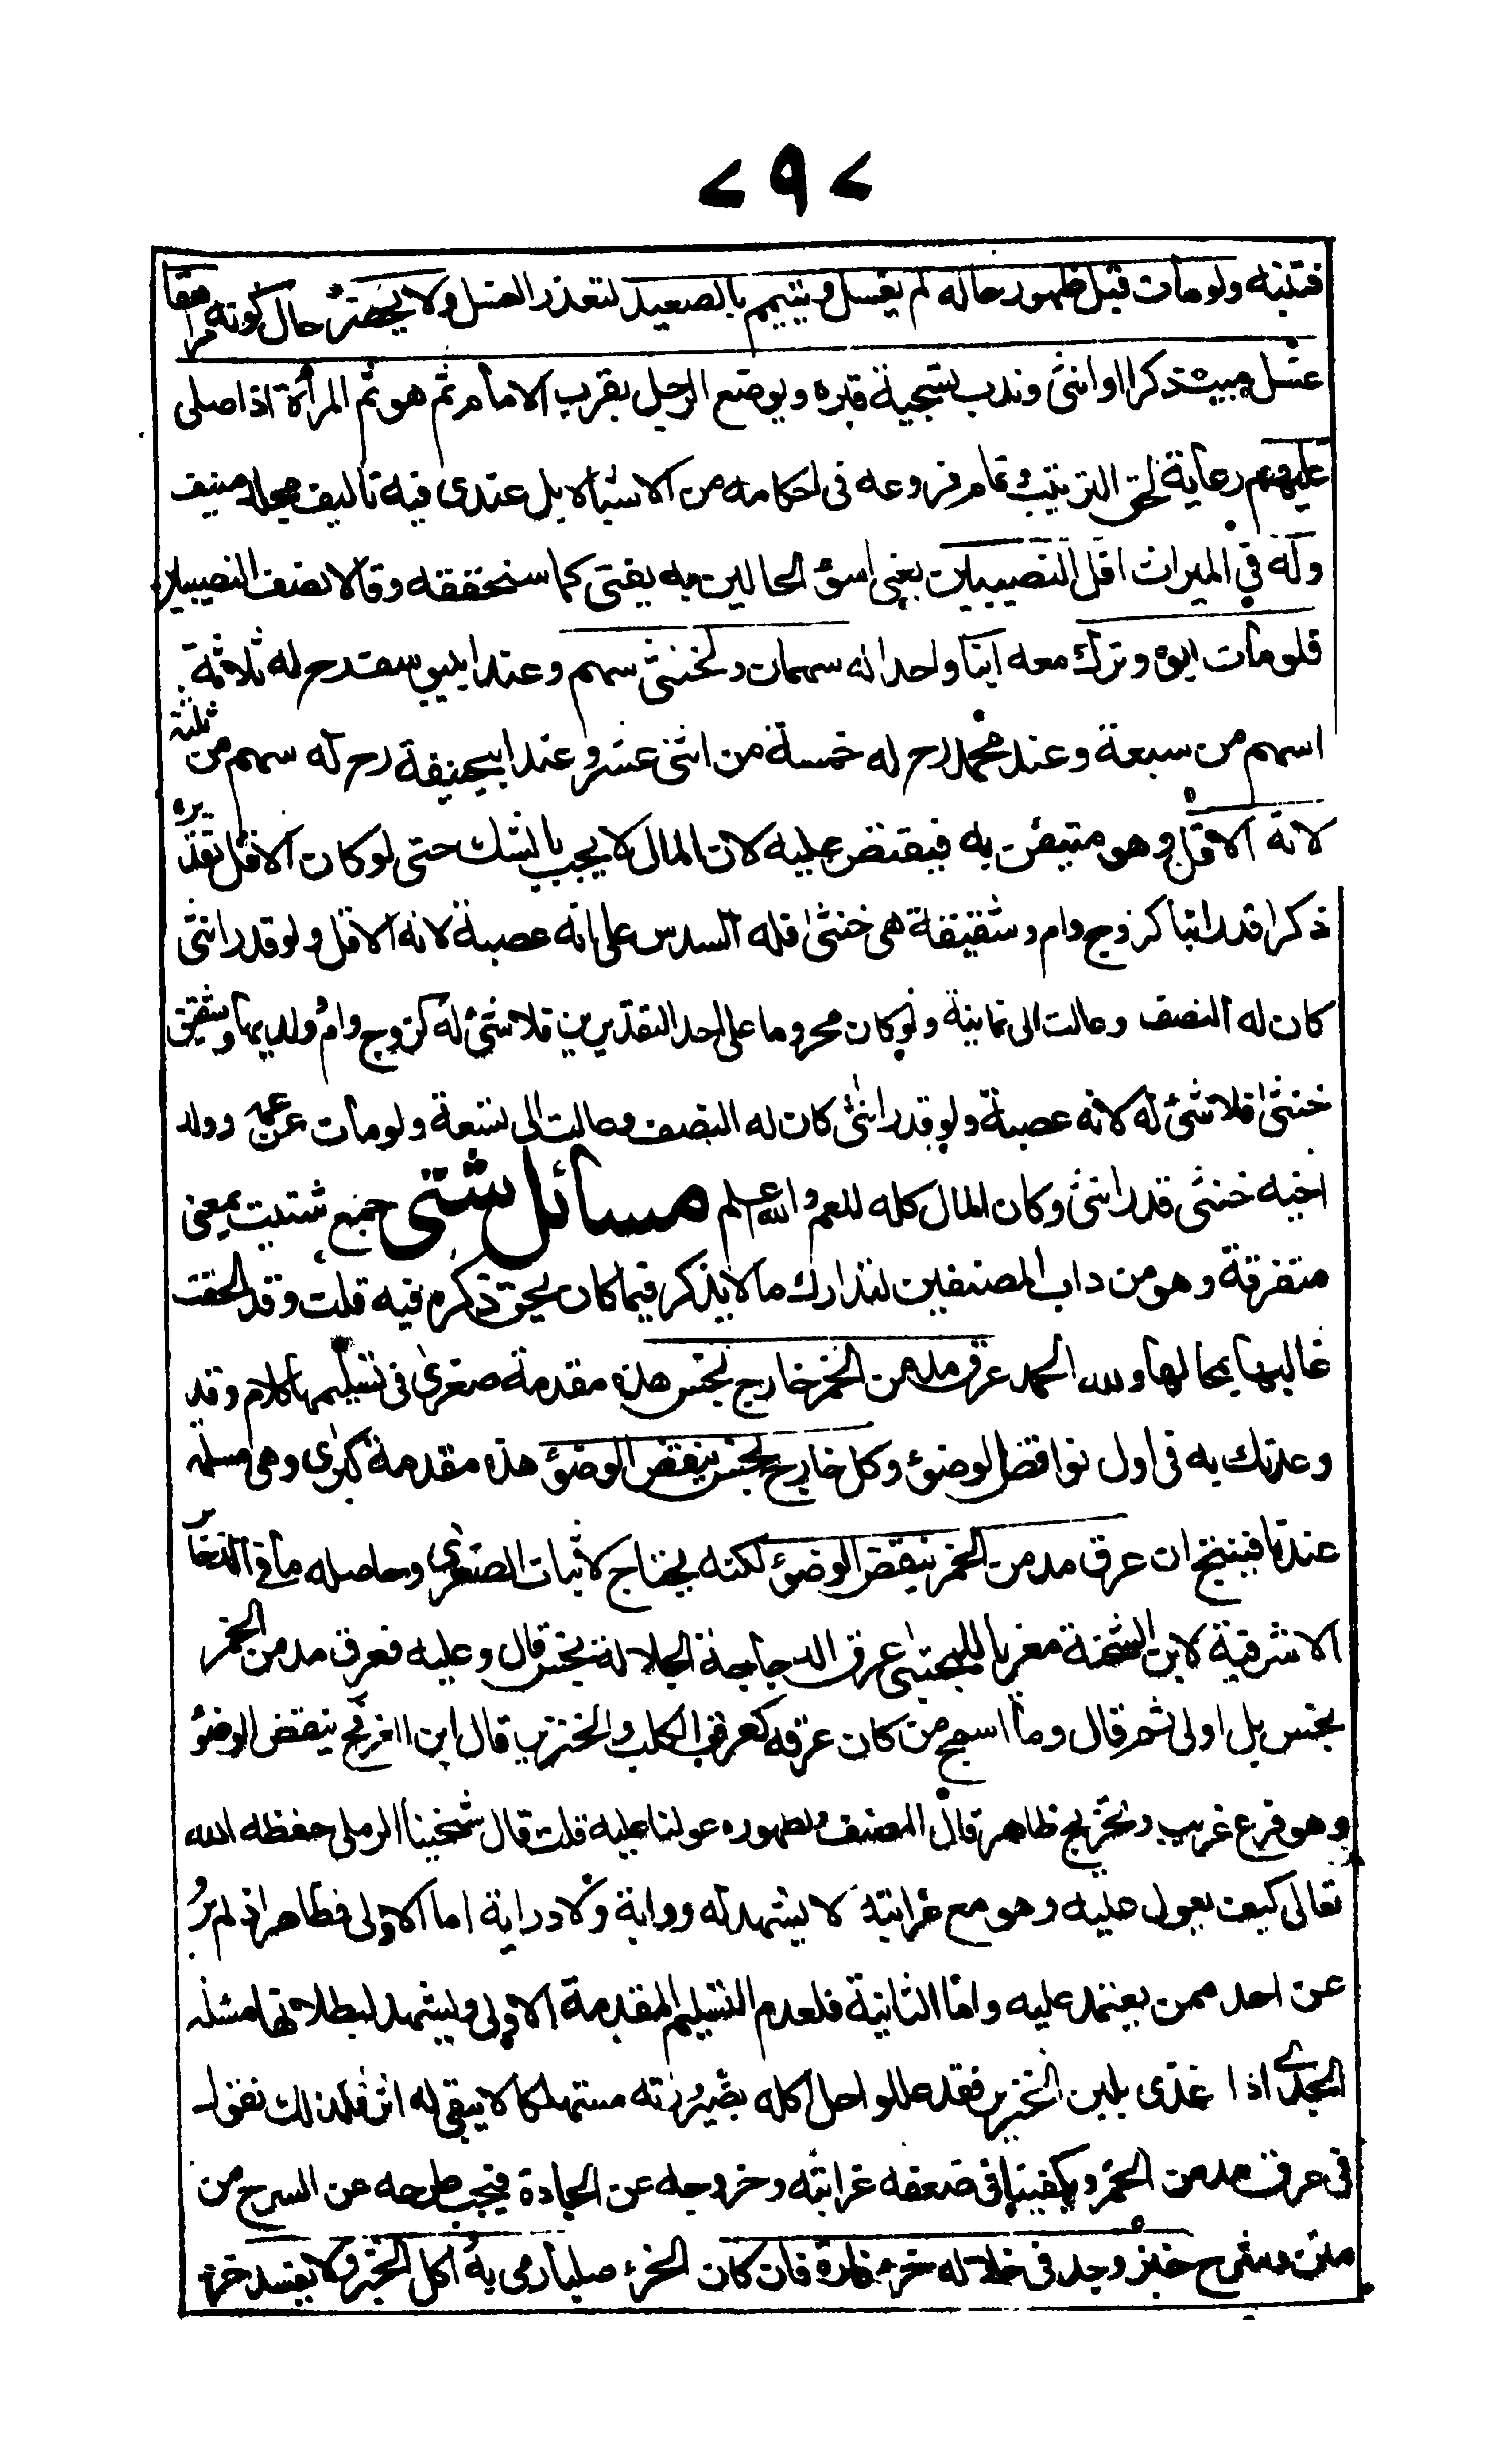 < ٩ <
فتنبه ولو مات قبل ظهور حاله لم يغسل ويتيمم بالصعيد لتعذر الغسل ولا يحضر حال كونه مراهقا
غسل ميت ذكرا او انثى وندب تسجية قبره ويوضع الرجل بقرب الامام ثم هو ثم المرأة اذا صلى
عليهم رعاية لحق الترتيب وتمام فروعه فى احكامه من الاشباه بل عندى فيه تاليف مجلد منيف
وله فى الميراث اقل النصيبين يعنى اسؤ الحالين به يفتى كما سنحققه وقالا نصف النصيبين
فلو مات ابوه وترك معه ابنا واحدا له سهمان وللخنثى سهم وعند ابييوسف رح له ثلاثة
اسهم من سبعة وعند محمد رح له خمسة من اثنى عشر وعند ابيحنيفة رح له سهم من ثلثه
لانه الاقل وهو متيقن به فيقتصر عليه لان المال لا يجب بالشك حتى لو كان الاقل تقديره
ذكرا قدر ابنا كزوج وام وشقيقة هى خنثى فله السدس على انه عصبة لانه الاقل ولو قدر انثى
كان له النصف وعالت الى ثمانية ولو كان محروما على احد التقديرين فلا شئ له كزوج وام وولديها وشقيق
خنثى فلا شئ له لانه عصبة ولو قدر انثى كان له النصف وعالت الى تسعة ولو مات عن عمه وولد
اخيه خنثى قدر انثى وكان المال كله للعم والله اعلم مسائل شتى جمع شتيت بمعنى
متفرقة وهو من داب المصنفين لتدارك ما لا يذكر فيما كان يحق ذكره فيه قلت وقد الحقت
غالبها بمحالها ولله الحمد عرق مدمن الخمر خارج نجس هذه مقدمة صغرى فى تسليمها كلام وقد
وعدتك به فى اول نواقض الوضوء وكل خارج نجس ينقض الوضوء هذه مقدمة كبرى وهى مسلمة
عندنا فينتج ان عرق مدمن الخمر ينقض الوضوء لكنه يحتاج لاثبات الصغرى وحاصله ما فى الذخائر
الاشرفية لابن الشحنة معزيا للمجتبى عرق الدجاجة الجلالة نجس قال وعليه فعرق مدمن الخمر
نجس بل اولى ثم قال وما اسمج من كان عرقه كعرق الكلب والخنزير قال ابن العز فح ينقض الوضؤ
وهو فرع غريب وتخريج ظاهر قال المصنف ولظهوره عولنا عليه قلت قال شيخنا الرملى حفظه الله
تعالى كيف يعول عليه وهو مع غرابته لا يشهد له رواية ولا دراية اما الاولى فظاهر اذ لم يرو
عن احد ممن يعتمد عليه واما الثانية فلعدم التسليم المقدمة الاولى ويشهد لبطلانها مسئلة
الجدى اذا غذى بلبن الخنزير فقد عللوا حل اكله بصيرورته مستهلكا لا يبقى له اثر فلذلك نقول
فى عرق مدمن الخمر ويكفينا فى ضعفه غرابته وخروجه عن الجادة فيجب طرحه عن السرح من
متن وشرح خبز وجد فى خلاله خرء فارة فان كان الخرء صلبا رمى به واكل الخبز ولا يفسد خرء